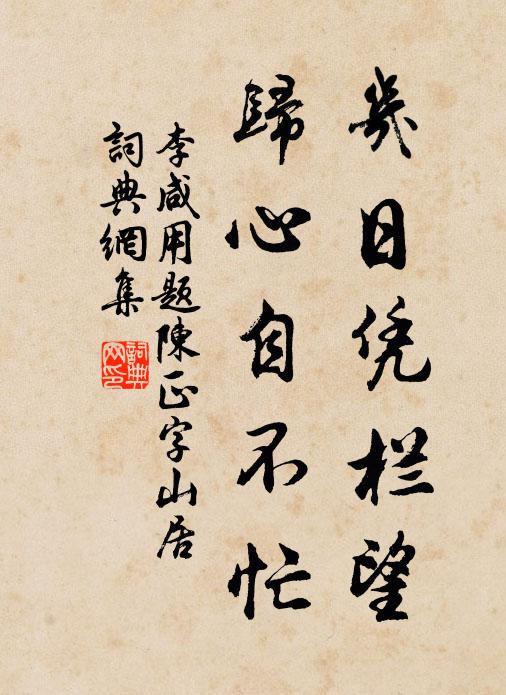 幾日凭栏望
歸心自不忙
李咸用题陳正字山居
詞典網集
詞典网印